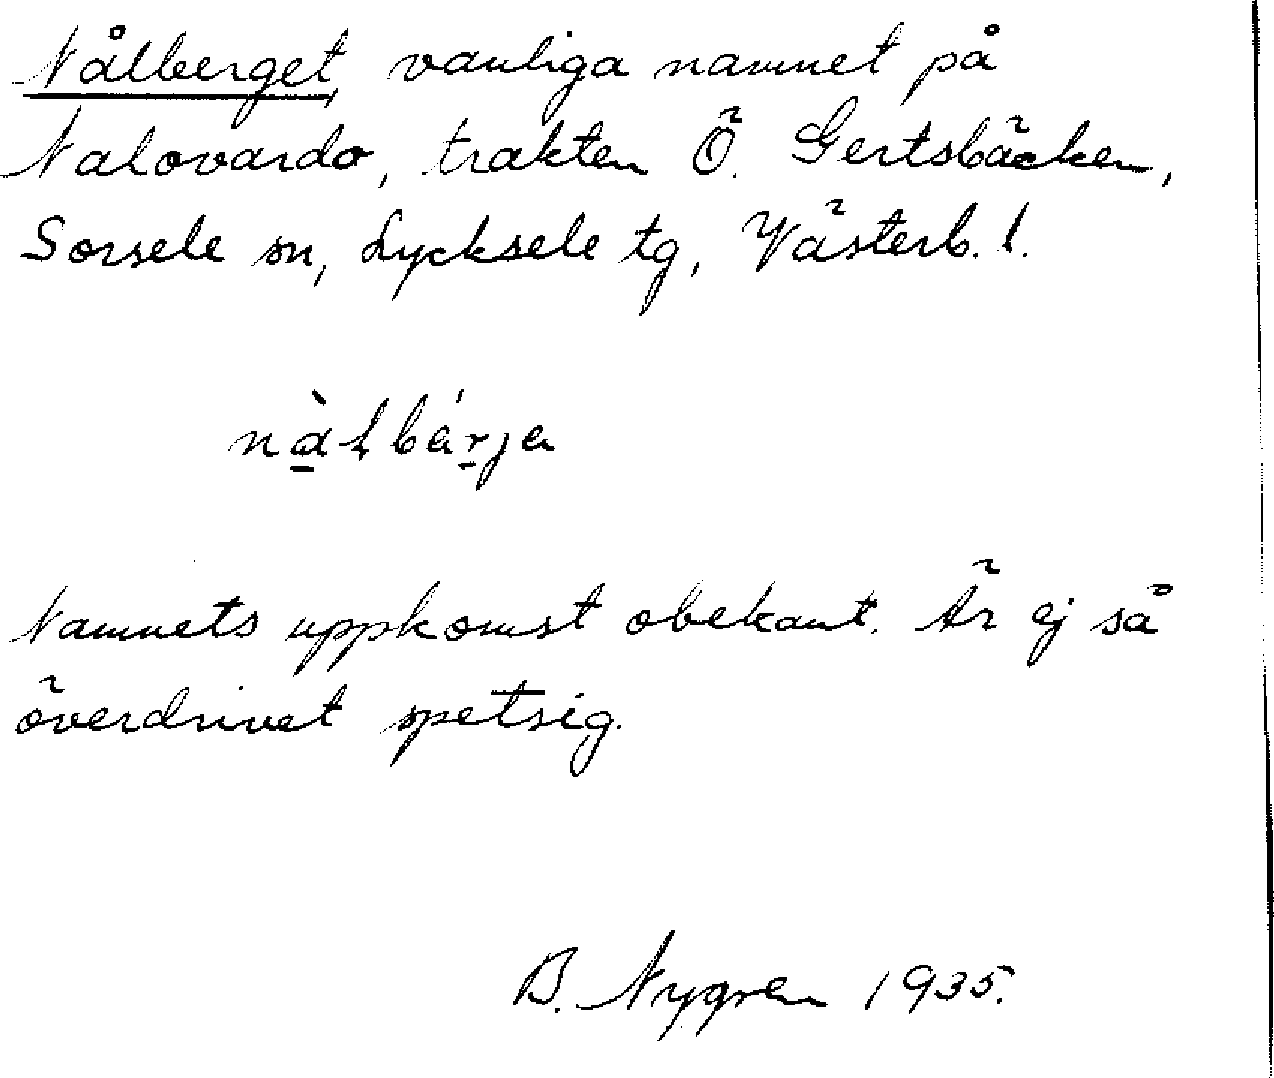 Nålberget, vanliga namnet på
Nalovardo, trakten Ö. Gertsbäcken,
Sorsele sn, Lycksele tg, Västerb. l.
nɑ̲̀ɫbárja
Namnets uppkomst obekant. Är ej så
överdrivet spetsig.
B. Nygren 1935.